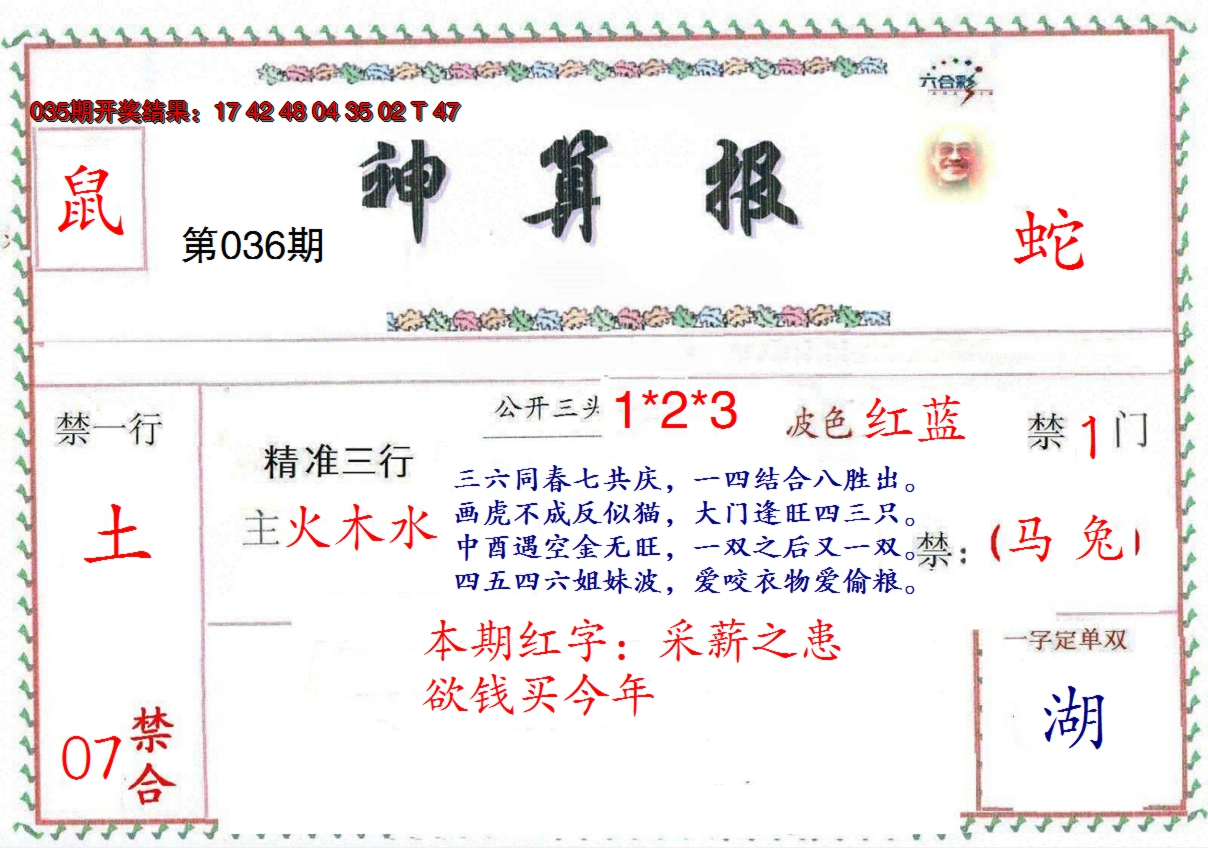 六合彩
035期开奖结果：17 42 48 04 35 02 T 47
神算报
鼠
第036期
蛇
禁一行
土
07禁合
精准三行
主火木水
公开三头 1*2*3
波色 红蓝
禁1门
三六同春七共庆，一四结合八胜出。
画虎不成反似猫，大门逢旺四三只。
申酉遇空金无旺，一双之后又一双。
四五四六姐妹波，爱咬衣物爱偷粮。
禁：（马 兔）
本期红字：采薪之患
欲钱买今年
一字定单双
湖